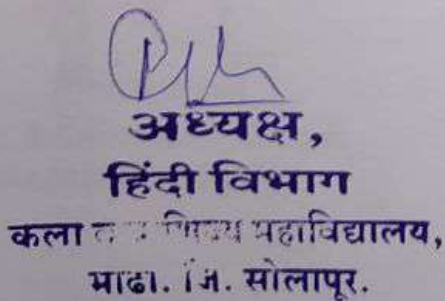 अध्यक्ष,
हिंदी विभाग
कला महाविद्यालय,
माढा. जि. सोलापूर.